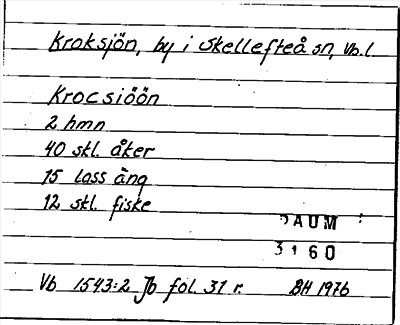 Kroksjön, by i Skellefteå sn, Vb.l
Krocsiöön
2 hmn
40 skl. åker
15 lass äng
12 skl. fiske
DAUM
3160
Vb 1543:2 Jb fol. 31 r. BH 1976